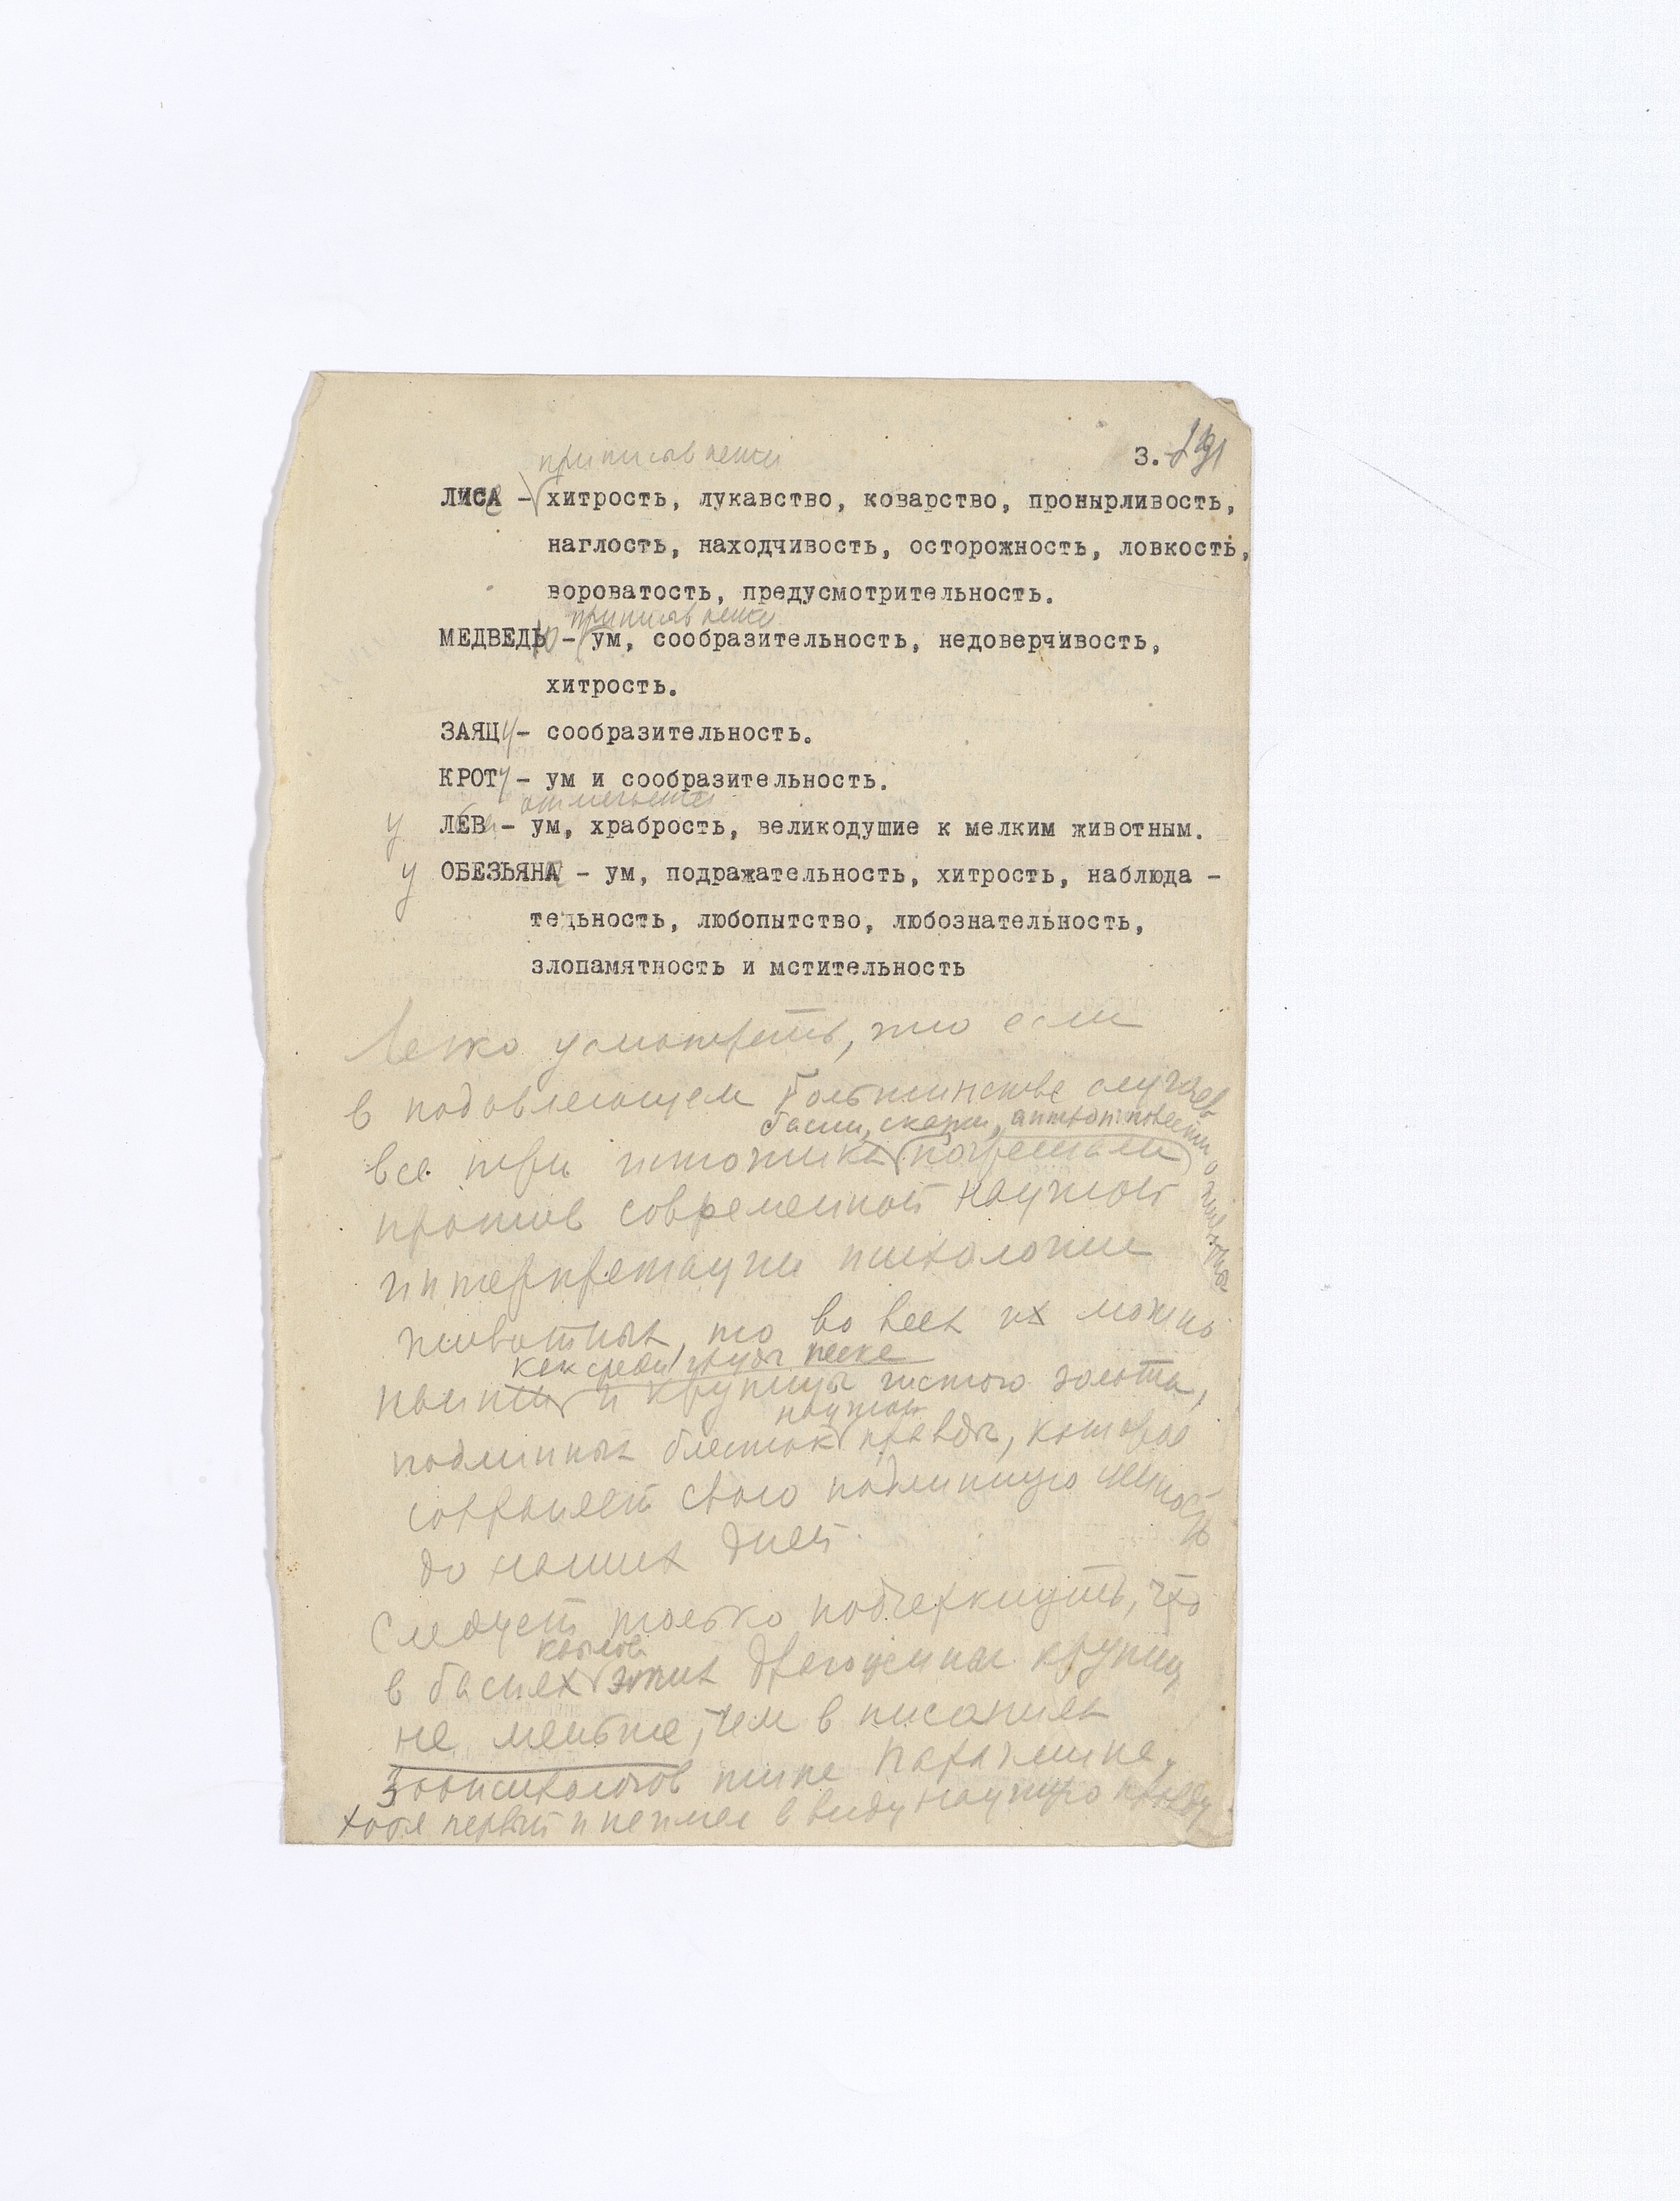 3.
приписаны
ЛИСА - хитрость, лукавство, коварство, пронырливость,
наглость, находчивость, осторожность, ловкость,
вороватость, предусмотрительность.
МЕДВЕДЬ - ум, сообразительность, недоверчивость,
хитрость.
ЗАЯЦУ - сообразительность.
КРОТУ - ум и сообразительность.
отмечается
у ЛЕВ - ум, храбрость, великодушие к мелким животным.
у ОБЕЗЬЯНА - ум, подражательность, хитрость, наблюда -
тельность, любопытство, любознательность,
злопамятность и мстительность
Легко усмотреть, что если
в подавляющем большинстве случаев
басни, сказки, о животных
все три источника погрешали
против современной научной
интерпретации психологии
животных, то во всех их можно
как среди груды песка
найти и крупицы чистого золота,
научной
подлинных блесток правды, которая
сохраняет свою подлинную ценность
до наших дней
Следует только подчеркнуть, что
в баснях этих драгоценных крупиц
не меньше, чем в писаниях
зоопсихологов типа
хотя первый и не имел в виду научную правду